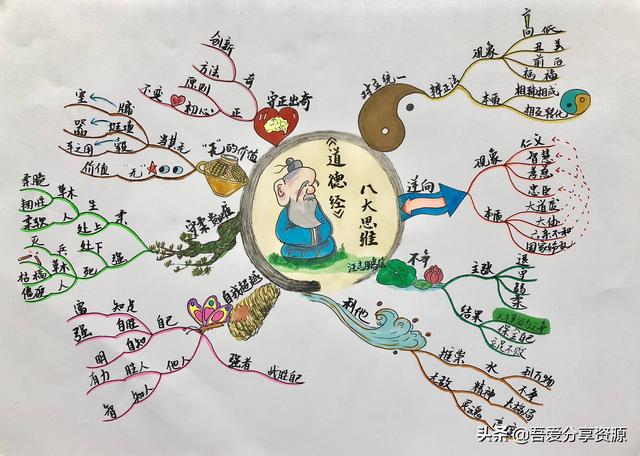 《道德经》
八大思维
对立统一
辩证法
现象
高 低
丑 美
前 后
祸 福
本质
相辅相成
相互转化
逆向
现象
仁义
智慧
孝慈
忠臣
本质
大道废
大伪
六亲不和
国家昏乱
不争
主张
退
卑
弱
柔
结果
保全自己
立足不败
利他
推崇
水
利万物
不争
无敌
精神
大格局
灵魂
自我超越
自己
知足
富
自胜
强
自知
明
他人
胜人
有力
知人
智
强者
战胜自己
守柔
柔
生
草木
柔脆
人
韧性
处上
柔软
强
处下
兵
灭
死
草木
枯槁
人
僵硬
"无"的价值
当其无
牖
室
埏埴
器
毂
车之用
价值
无
守正出奇
奇
方法
创新
正
原则
不变
初心
头条 @吾爱分享资源